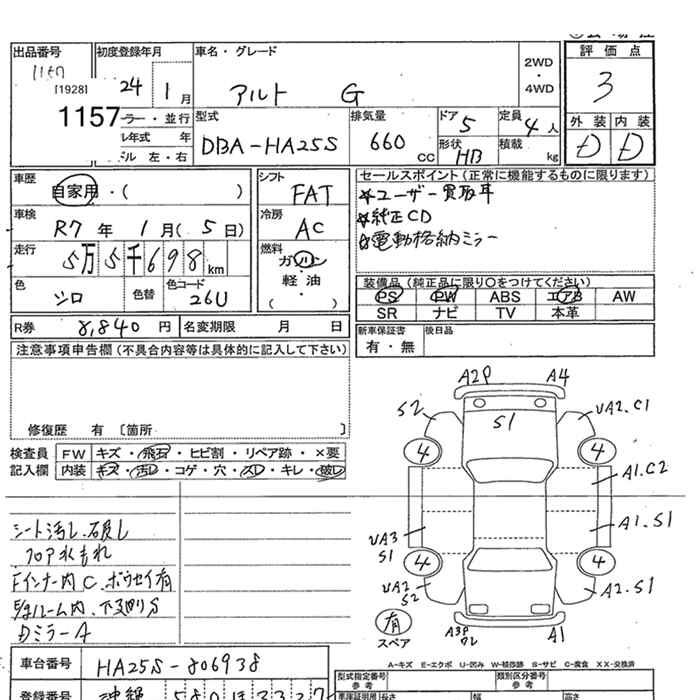 出品番号
初度登録年月
車名・グレード
評価点
[1928]
1157
24
1月
アルト G
2WD
・
4WD
3
ラー・並行
ル年式 年
ドル 左・右
型式
DBA-HA25S
排気量
660
cc
ドア
5
定員
4人
形状
HB
積載
kg
外装
内装
D
D
車歴
自家用・( )
シフト
FAT
車検
R7年 1月(5日)
冷房
AC
走行
5万5千698km
燃料
ガソリン
・
軽油
・
( )
色
シロ
色替
色コード
26U
R券
8,840円
名変期限 月 日
セールスポイント(正常に機能するものに限ります)
☆ユーザー買取車
☆純正CD
☆電動格納ミラー
装備品(純正品に限り○をつけてください)
PS PW ABS エアB AW
SR ナビ TV 本革
新車保証書
有・無
後日品
注意事項申告欄(不具合内容等は具体的に記入して下さい)
修復歴 有 〔箇所 〕
検査員
記入欄
FW キズ・飛石・ヒビ割・リペア跡・×要
内装 キズ・汚レ・コゲ・穴・スレ・キレ・破レ
シート汚レ、破レ
フロア水もれ
Fインナー内C、ボウセイ有
E/gルーム内、下廻りS
DミラーA
A2P
A4
S2
S1
UA2.C1
4
4
A1.C2
A1.S1
UA3
S1
4
4
UA2
S2
A2.S1
有
スペア
A3P
ワレ
A1
A-キズ E-エクボ U-凹み W-補修跡 S-サビ C-腐食 XX-交換済
車台番号
HA25S-806938
登録番号
沖縄 580 ほ 3327
型式指定番号
参考
類別区分番号
参考
長さ
幅
高さ